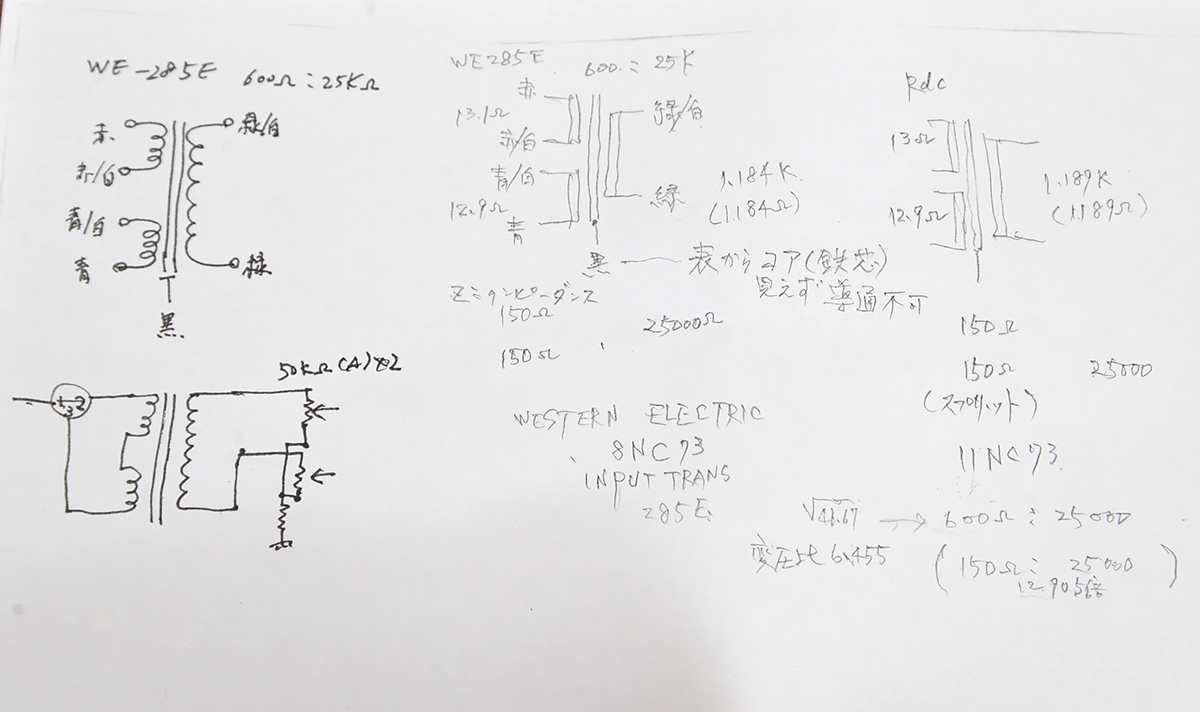 WE-285E 600Ω:25KΩ
赤
赤/白
青/白
青
緑/白
緑
黒
50KΩ(A)×2
WE285E 600:25K
赤
13.1Ω
赤/白
青/白
12.9Ω
青
緑/白
緑
1.184K
(1.184Ω)
黒 — 表からコア(鉄芯)
見えず 導通不可
Zインピーダンス
150Ω
25000Ω
150Ω
WESTERN ELECTRIC
8NC73
INPUT TRANS
285E
Rdc
13Ω
12.9Ω
1.189K
(1.189Ω)
150Ω
150Ω 25000
11NC73
√41.67 → 600Ω:25000
変圧比 6.455
(150Ω:25000)
12.905倍